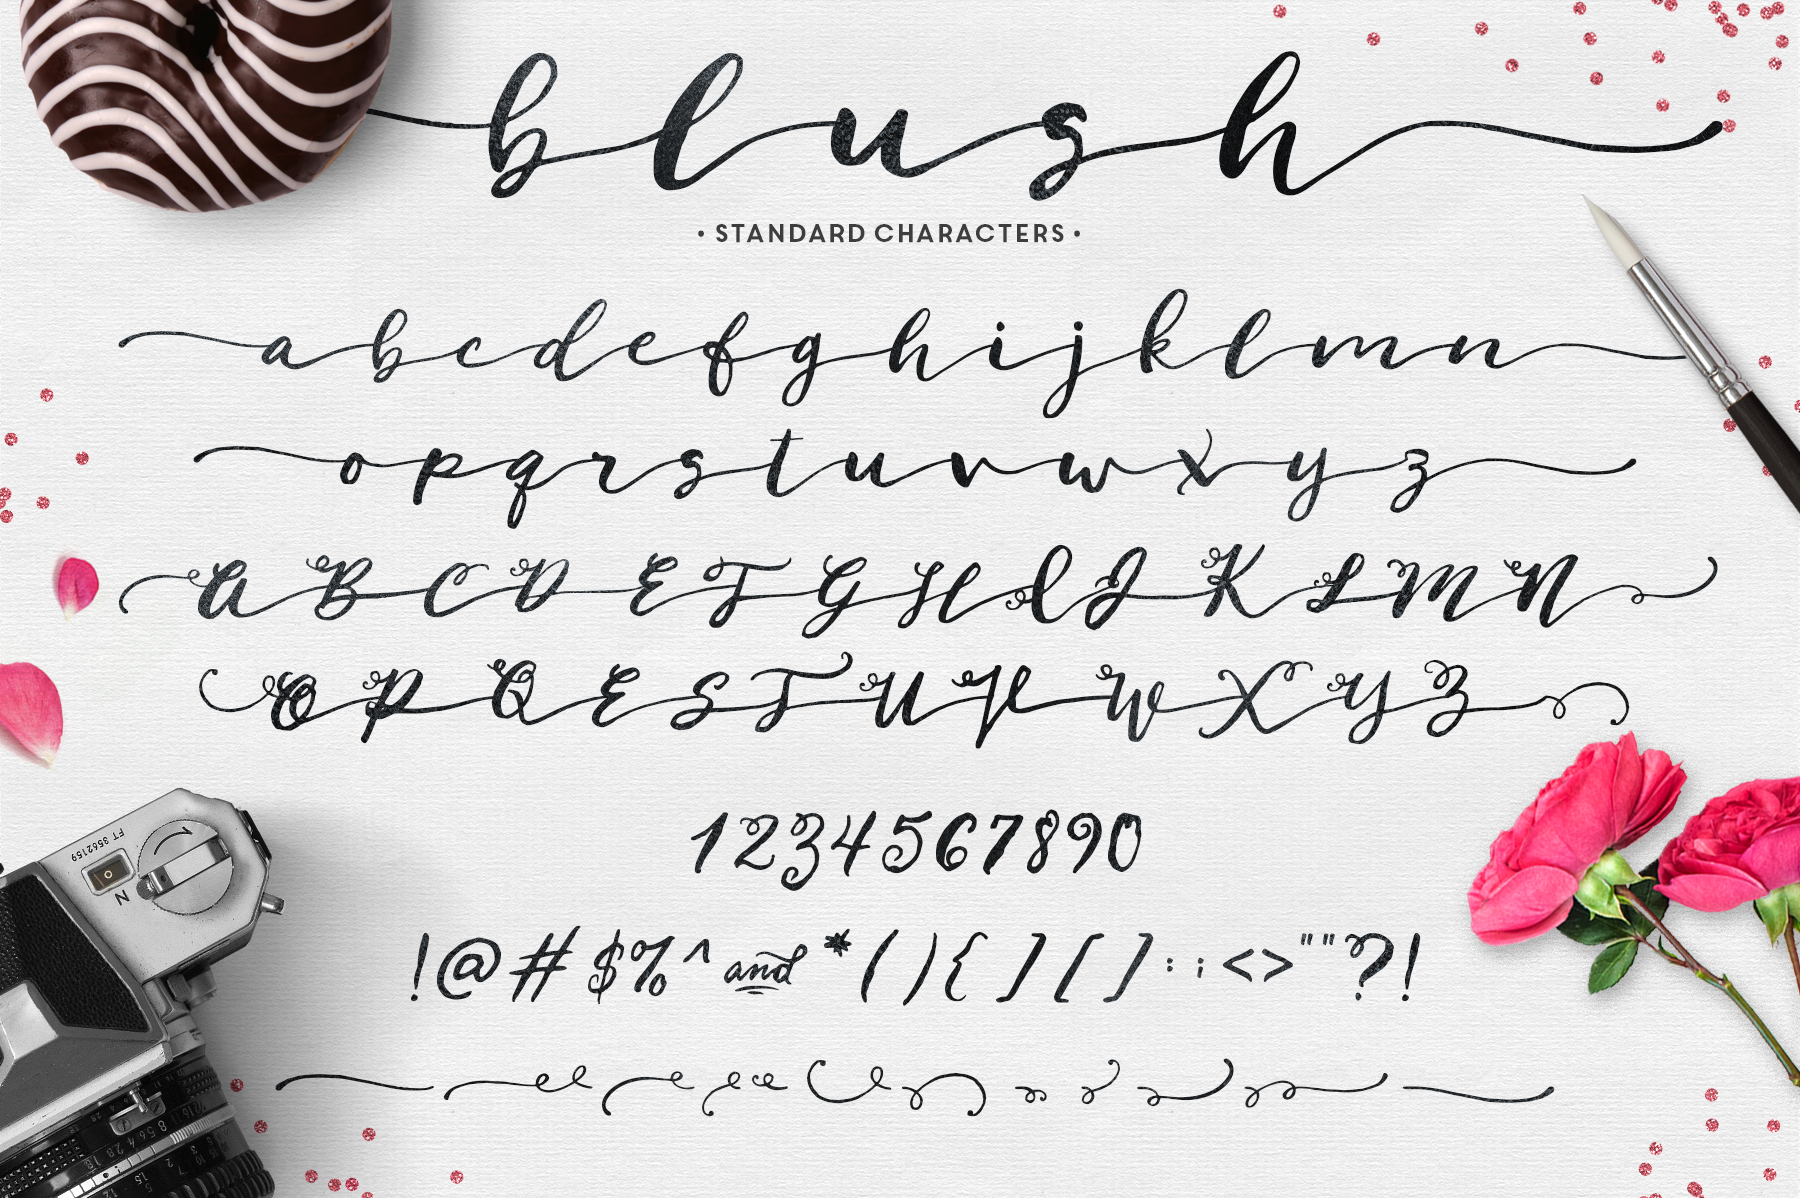 blush
• STANDARD CHARACTERS •
abcdefghijklmn
opqrstuvwxyz
ABCDEFGHIJKLMN
OPQESTUVWXYZ
1234567890
!@#$%^and*(){][]:;<>""?!
FT 3562159
N